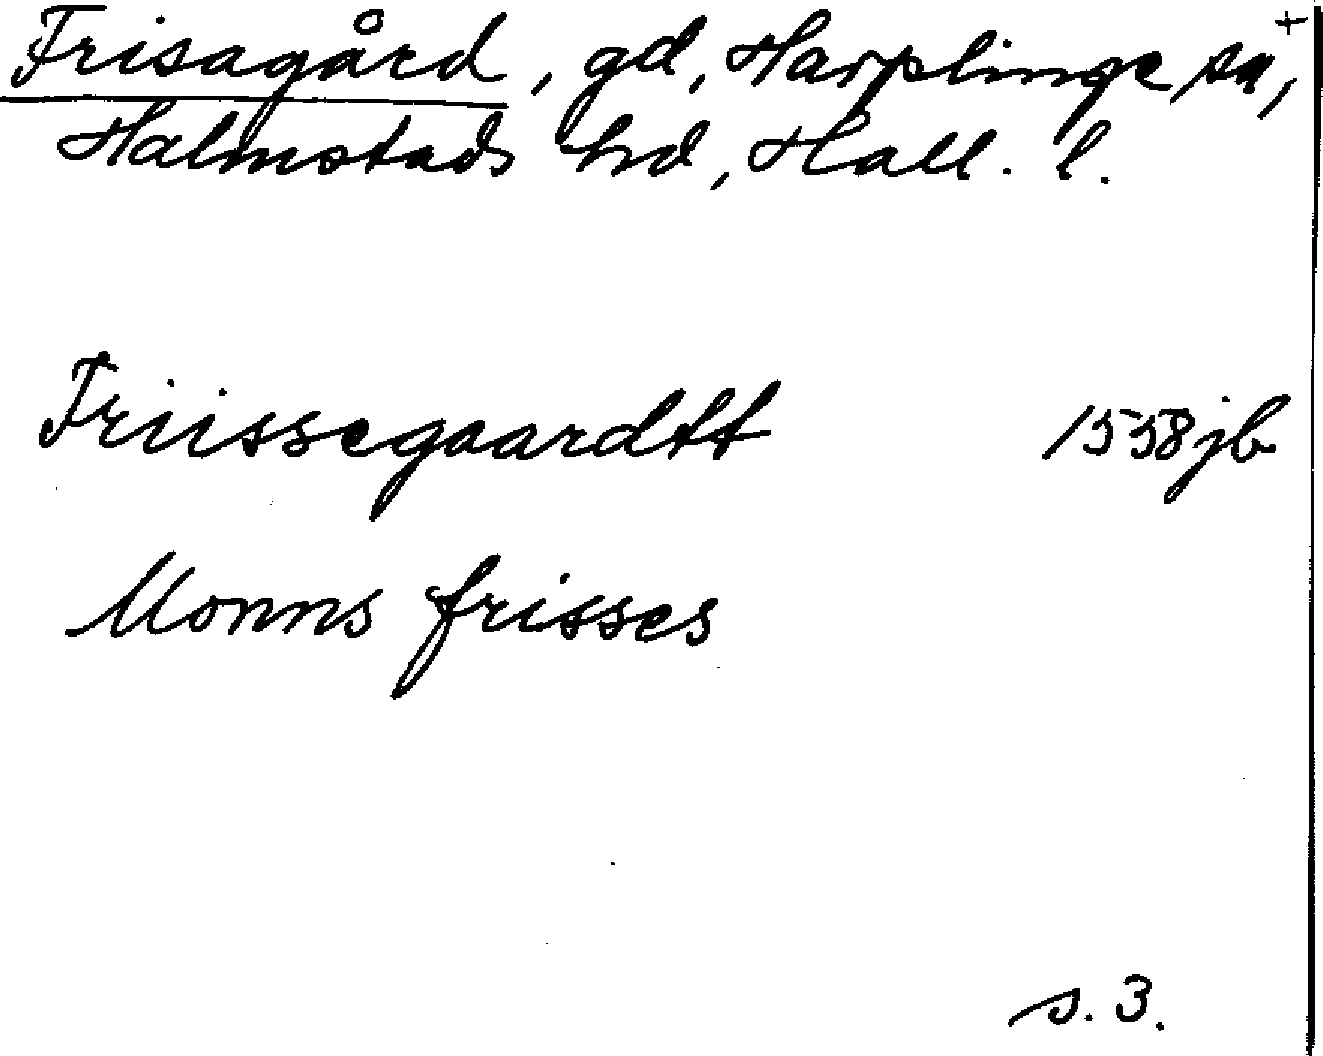 Frisagård, gd, Harplinge sn, +
Halmstads hd, Hall. l.
Friissegaardtt 1558 jb
Monns frisses
s. 3.